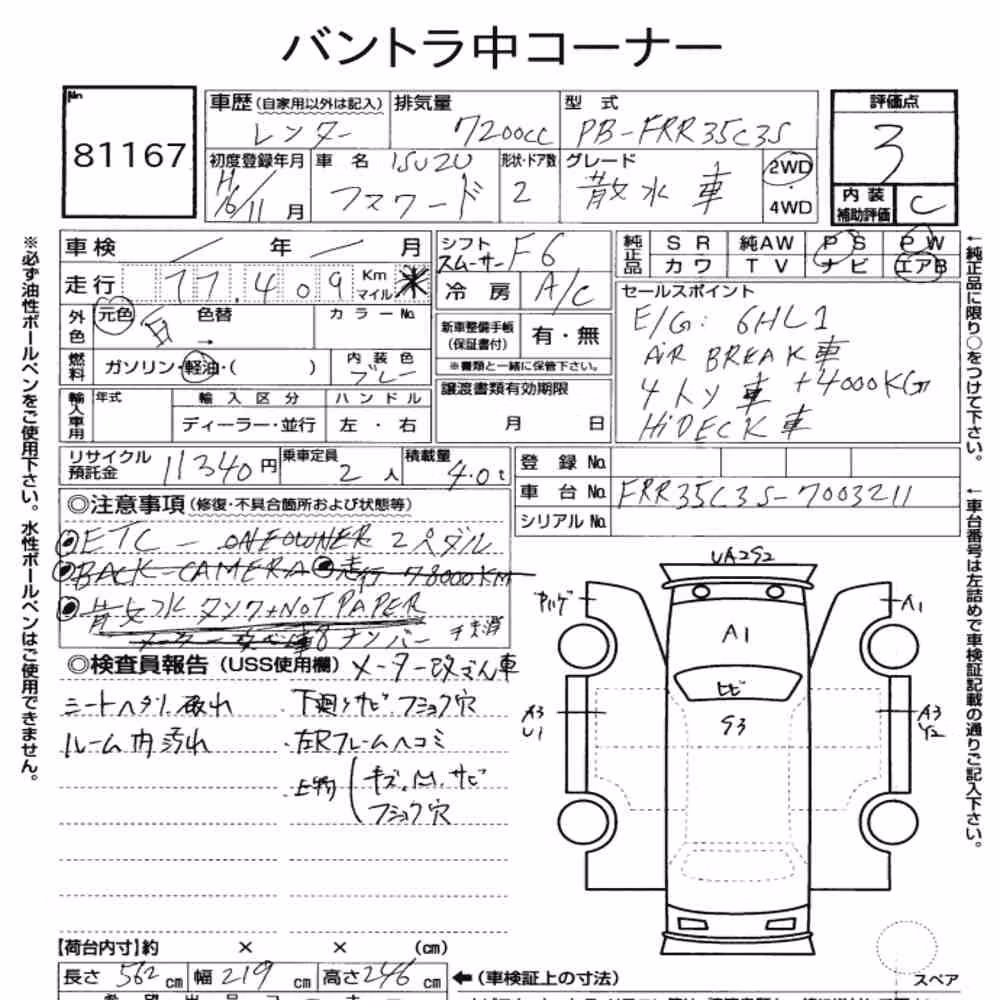 バントラ中コーナー
No
81167
車歴(自家用以外は記入)
レンター
排気量
7200cc
型 式
PB-FRR35C3S
評価点
3
初度登録年月
H 16/11 月
車 名 ISUZU
フスワード
形状・ドア数
2
グレード
散水車
2WD
・
4WD
内 装
補助評価
C
車検 / 年 / 月
走行 77.409 Km マイル
外色
元色 白 色替 →
カラーNo
燃料
ガソリン・軽油・( )
内 装 色
ブレー
輸入車用
年式
輸 入 区 分
ディーラー・並行
ハ ン ド ル
左 ・ 右
シフト
F6
冷 房
A/C
新車整備手帳
(保証書付)
有・無
※書類と一緒に保管下さい。
譲渡書類有効期限
月 日
純正品
S R 純AW P S P W
カワ T V ナビ エアB
セールスポイント
E/G: 6HL1
AIR BREAK車
4トン車 +4000KG
HiDECK車
リサイクル
預託金
11340円
乗車定員
2 人
積載量
4.0 t
登 録 No.
車 台 No. FRR35C3S-7003211
シリアル No.
◎注意事項(修復・不具合箇所および状態等)
ETC - ONEOWNER 2ペダル
BACK-CAMERA 走行 78000KM
散水タンク+NOT PAPER
8ナンバー
◎検査員報告(USS使用欄) メーター改ざん車
シートヘタリ 破れ
ルーム内汚れ
下廻りサビ フショク穴
左Rフレームヘコミ
上物
キズ、凹、サビ
フショク穴
UA2S2
A1
A1
ヒビ
G3
A3
U1
A3
Y2
【荷台内寸】約 × × (cm)
長さ 562 cm 幅 219 cm 高さ 246 cm
←(車検証上の寸法)
スペア
※必ず油性ボールペンをご使用下さい。水性ボールペンはご使用できません。
←純正品に限り○をつけて下さい。
←車台番号は左詰めで車検証記載の通りご記入下さい。